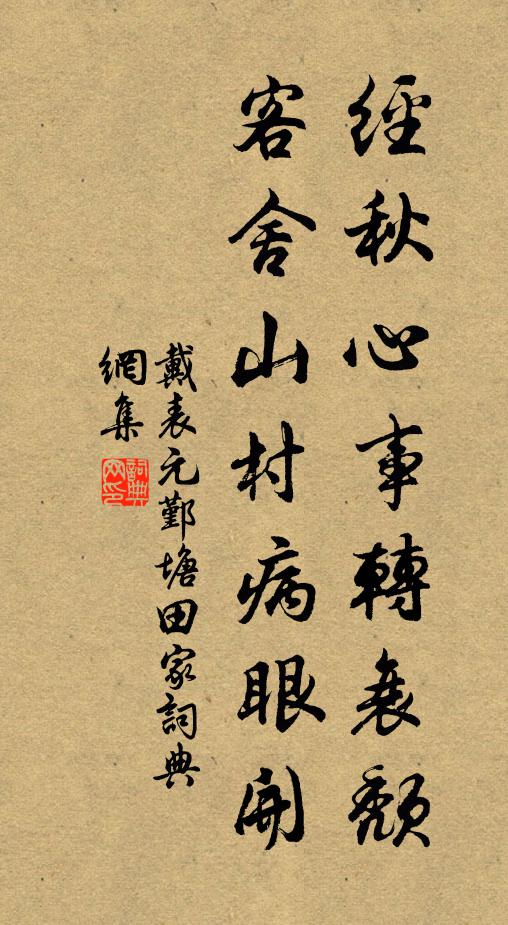 經秋心事轉衰頹
客舍山村病眼開
戴表元鄞塘田家詞典
網集
詞典網印